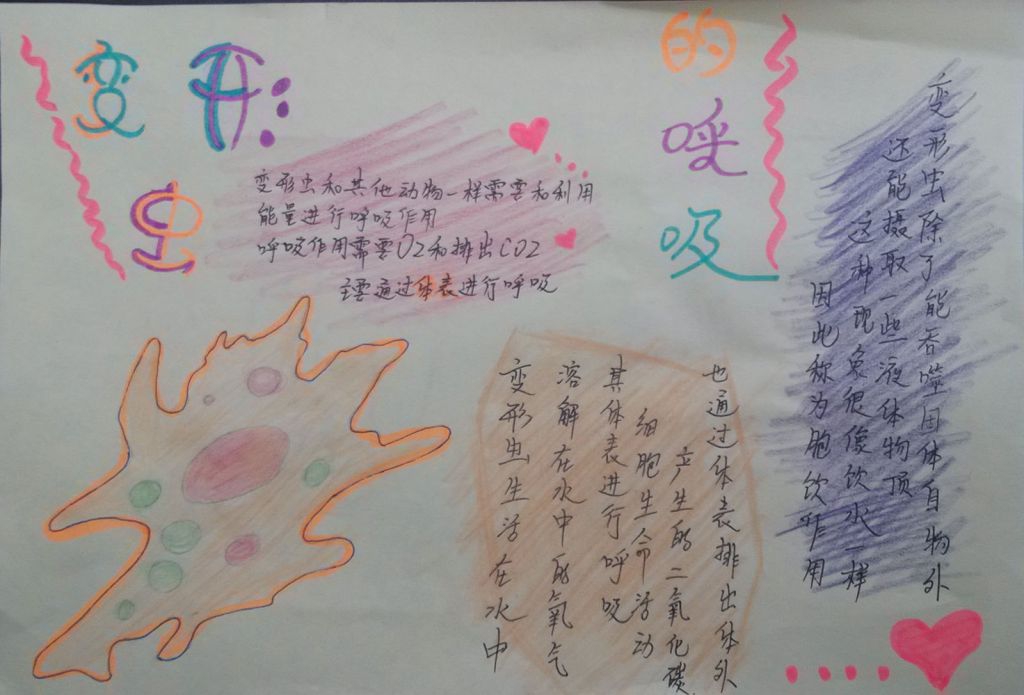 变形
虫
的
呼
吸
变形虫和其他动物一样需要和利用
能量进行呼吸作用
呼吸作用需要O2和排出CO2
主要通过体表进行呼吸
变形虫生活在水中
溶解在水中的氧气
其体表进行呼吸
细胞生命活动
产生的二氧化碳
也通过体表排出体外
变形虫除了能吞噬固体自物外
还能摄取一些液体物顶
这种现象很像饮水一样
因此称为胞饮作用